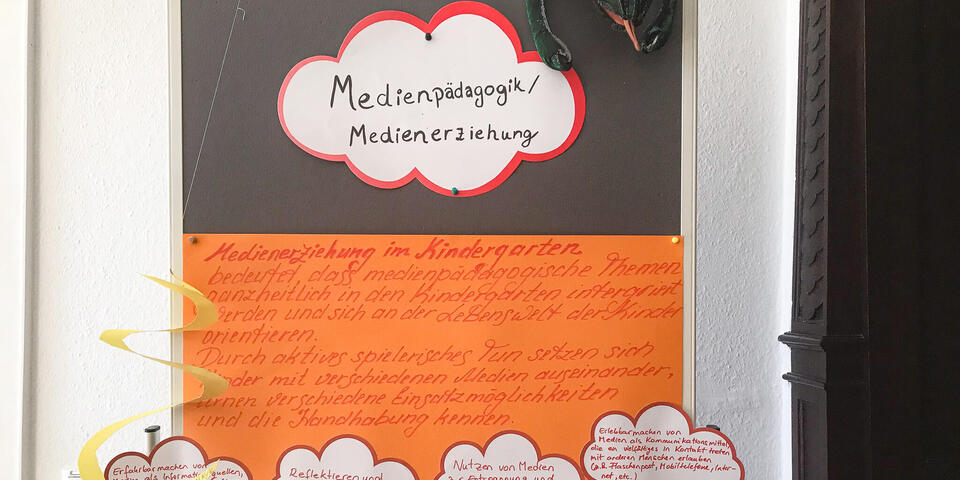 Medienpädagogik/
Medienerziehung
Medienerziehung im Kindergarten
bedeutet, dass medienpädagogische Themen
ganzheitlich in den Kindergarten intergriert
werden und sich an der Lebenswelt der Kinder
orientieren.
Durch aktives spielerisches Tun setzen sich
Kinder mit verschiedenen Medien auseinander,
lernen verschiedene Einsatzmöglichkeiten
und die Handhabung kennen.
Erfahrbar machen von
Medien als Informationsquellen,
Reflektieren und
Nutzen von Medien
zur Entspannung und
Erlebbar machen von
Medien als Kommunikationsmittel,
die ein vielfältiges in Kontakt treten
mit anderen Menschen erlauben
(z.B. Flaschenpost, Mobiltelefone, Inter-
net, etc.)